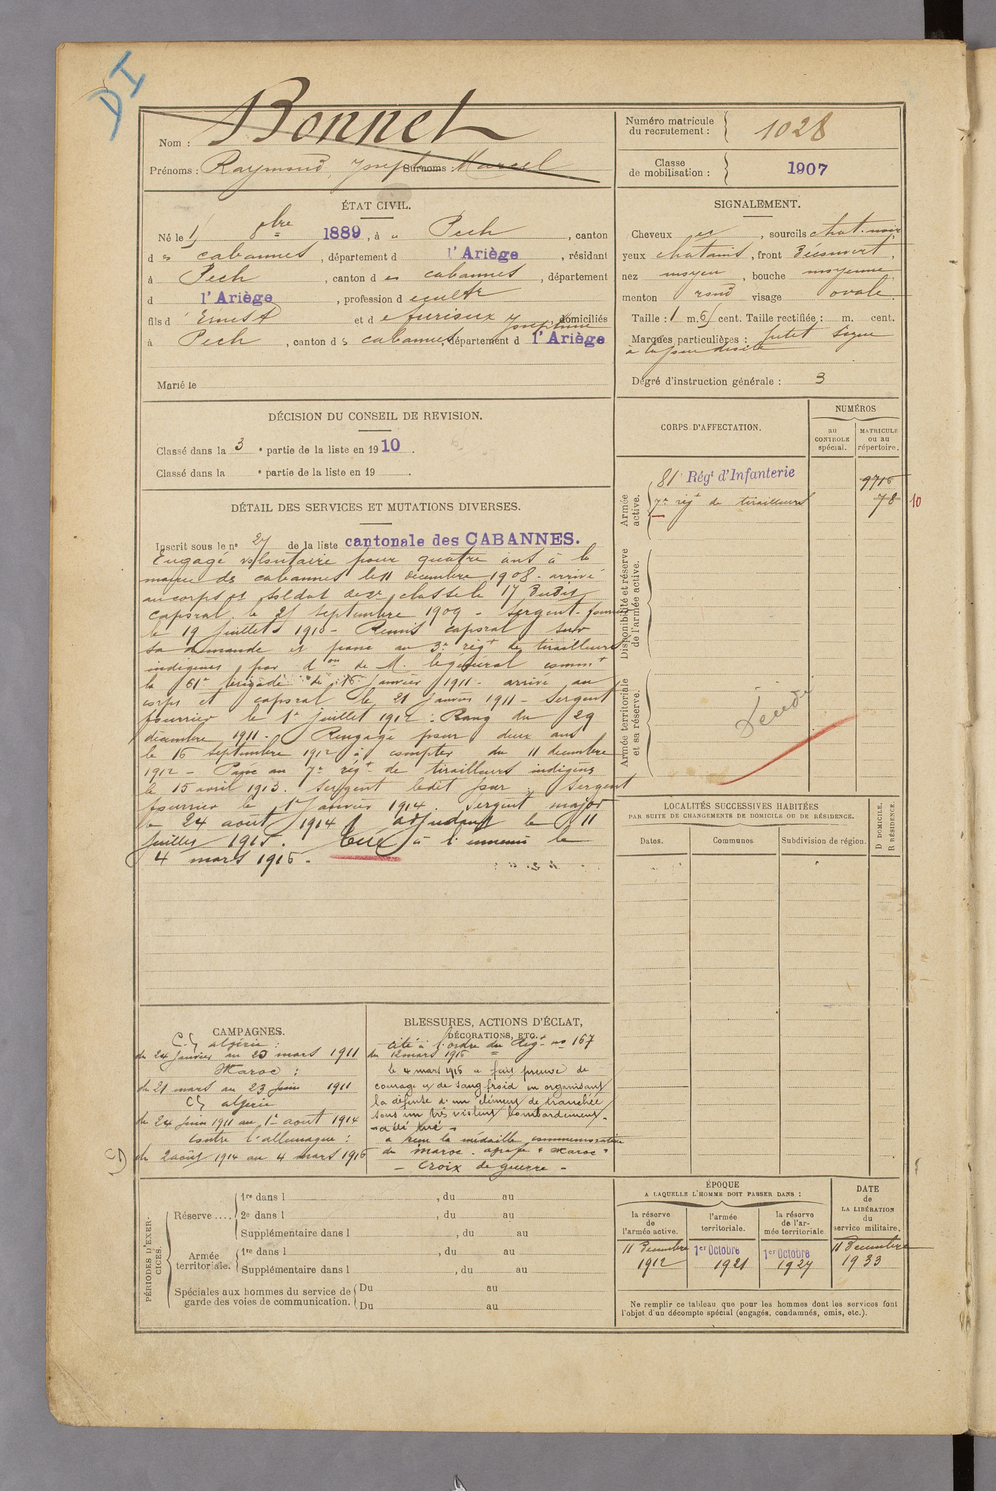 DI
Nom : Bonnet
Prénoms : Raymond, Joseph Surnoms : Marcel
Numéro matricule du recrutement : 1028
Classe de mobilisation : 1907
ÉTAT CIVIL.
Né le 1 8bre 1889, à Pech, canton
d es cabannes, département d l'Ariège, résidant
à Pech, canton d es cabannes, département
d l'Ariège, profession d ecultr
fils d Ernest et d e Josephine domiciliés
à Pech, canton d s cabannes département d l'Ariège
Marié le
SIGNALEMENT.
Cheveux , sourcils chat. noir
yeux chatains, front Découvert,
nez moyen, bouche moyenne
menton rond visage ovale.
Taille : 1 m. 6 cent. Taille rectifiée : m. cent.
Marques particulières : Petit signe
à la joue droite
Dégré d'instruction générale : 3
DÉCISION DU CONSEIL DE REVISION.
Classé dans la 3 e partie de la liste en 1910
Classé dans la e partie de la liste en 19
CORPS D'AFFECTATION.
NUMÉROS
au CONTROLE spécial.
MATRICULE ou au répertoire.
Armée active.
81e Régt d'Infanterie 9716
7e régt de tirailleurs 78 10
Disponibilité et réserve de l'armée active.
Armée territoriale et sa réserve.
DÉTAIL DES SERVICES ET MUTATIONS DIVERSES.
Inscrit sous le no 27 de la liste cantonale des CABANNES.
Engagé volontaire pour quatre ans à la
mairie des cabannes le 11 décembre 1908. arrivé
au corps et soldat de 2e classe le 17 Dudit
caporal le 25 septembre 1909 - Sergent. fourrier
le 19 juillet 1910 - Remis caporal sur
sa demande et passé au 3e régt de tirailleurs
indigènes par don de M. le général commt
la 61e brigade du 16 janvier 1911. arrivé au
corps et caporal le 21 janvier 1911 - Sergent
fourrier le 1er juillet 1912. Rang du 29
décembre 1911. Rengagé pour deux ans
le 16 septembre 1912 à compter du 11 décembre
1912 - Passé au 7e régt de tirailleurs indigènes
le 15 avril 1913. Sergent ledit jour. Sergent
fourrier le 1er janvier 1914. Sergent major
le 24 août 1914. adjudant le 11
juillet 1915. Tué à l'ennemi le
4 mars 1916 -
LOCALITÉS SUCCESSIVES HABITÉES
PAR SUITE DE CHANGEMENTS DE DOMICILE OU DE RÉSIDENCE.
Dates. Communes Subdivision de région. D DOMICILE. R RÉSIDENCE.
CAMPAGNES.
algérie :
du 24 janvier au 20 mars 1911
Maroc :
du 21 mars au 23 juin 1911
algerie
du 24 juin 1911 au 1er aout 1914
contre l'allemagne :
du 2 août 1914 au 4 mars 1916
BLESSURES, ACTIONS D'ÉCLAT,
DÉCORATIONS, ETC.
Cité à l'ordre du Régt no 167
du 12 mars 1916
le 4 mars 1916 a fait preuve de
courage et de sang froid en organisant
la défense d'un élément de tranchée
sous un très violent bombardement.
a été tué
a reçu la médaille commémorative
du Maroc. agrafe "Maroc"
- Croix de guerre -
PÉRIODES D'EXERCICES.
Réserve....
1re dans l , du au
2e dans l , du au
Supplémentaire dans l , du au
Armée territoriale.
1re dans l , du au
Supplémentaire dans l , du au
Spéciales aux hommes du service de garde des voies de communication.
Du au
Du au
ÉPOQUE
A LAQUELLE L'HOMME DOIT PASSER DANS :
la réserve de l'armée active.
l'armée territoriale.
la réserve de l'armée territoriale
DATE de LA LIBÉRATION du service militaire.
11 Décembre 1912
1er Octobre 1921
1er Octobre 1927
11 Décembre 1933
Ne remplir ce tableau que pour les hommes dont les services font
l'objet d'un décompte spécial (engagés, condamnés, omis, etc.).